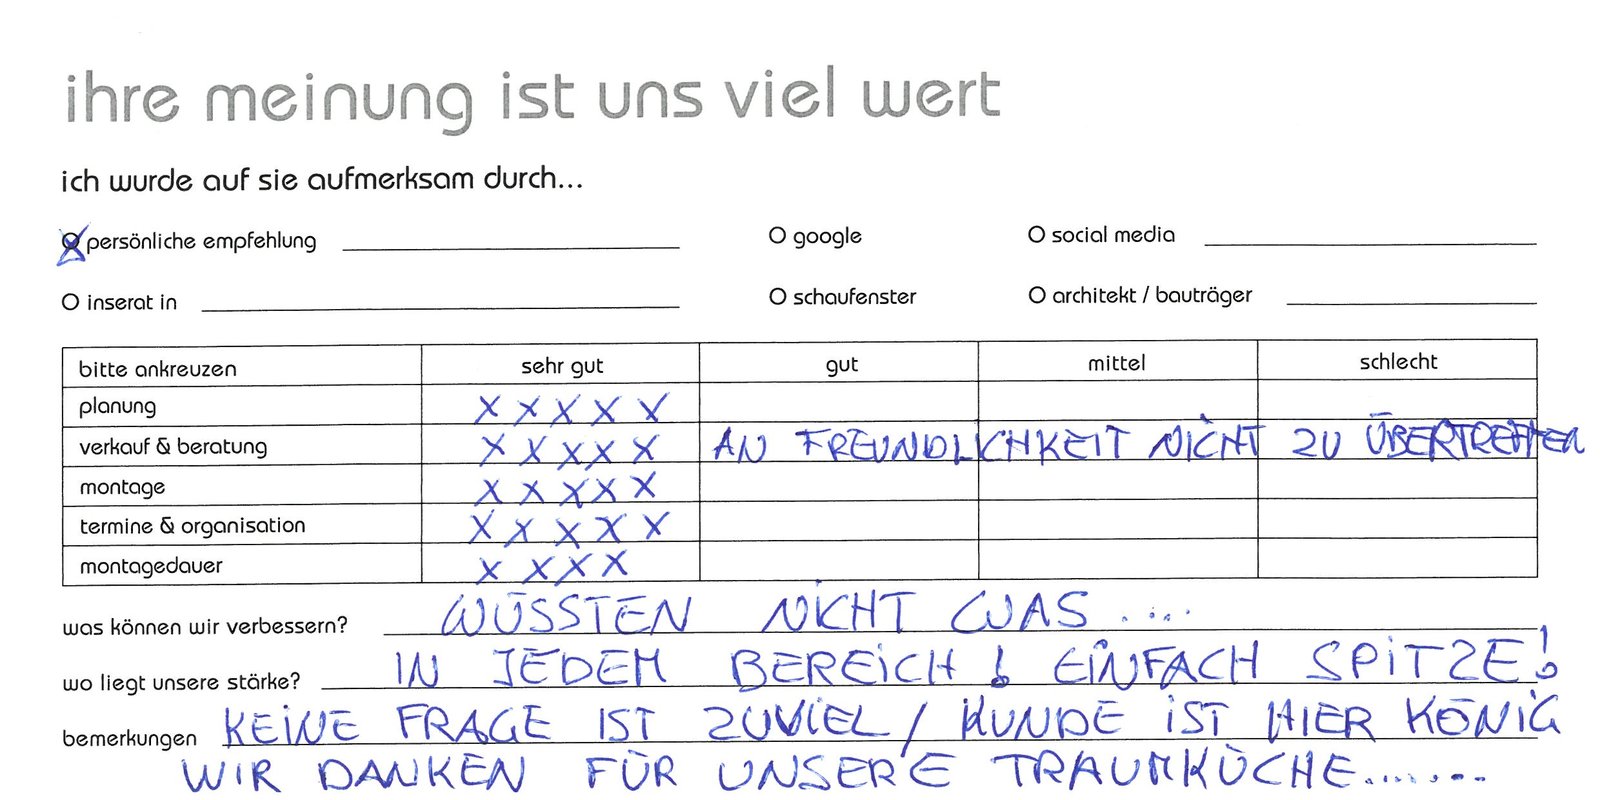 ihre meinung ist uns viel wert
ich wurde auf sie aufmerksam durch...
X persönliche empfehlung O google O social media
O inserat in O schaufenster O architekt / bauträger
bitte ankreuzen sehr gut gut mittel schlecht
planung X X X X X
verkauf & beratung X X X X X AN FREUNDLICHKEIT NICHT ZU ÜBERTREFFEN
montage X X X X X
termine & organisation X X X X X
montagedauer X X X X
was können wir verbessern? WÜSSTEN NICHT WAS ....
wo liegt unsere stärke? IN JEDEM BEREICH! EINFACH SPITZE!
bemerkungen KEINE FRAGE IST ZUVIEL / KUNDE IST HIER KÖNIG
WIR DANKEN FÜR UNSERE TRAUMKÜCHE........